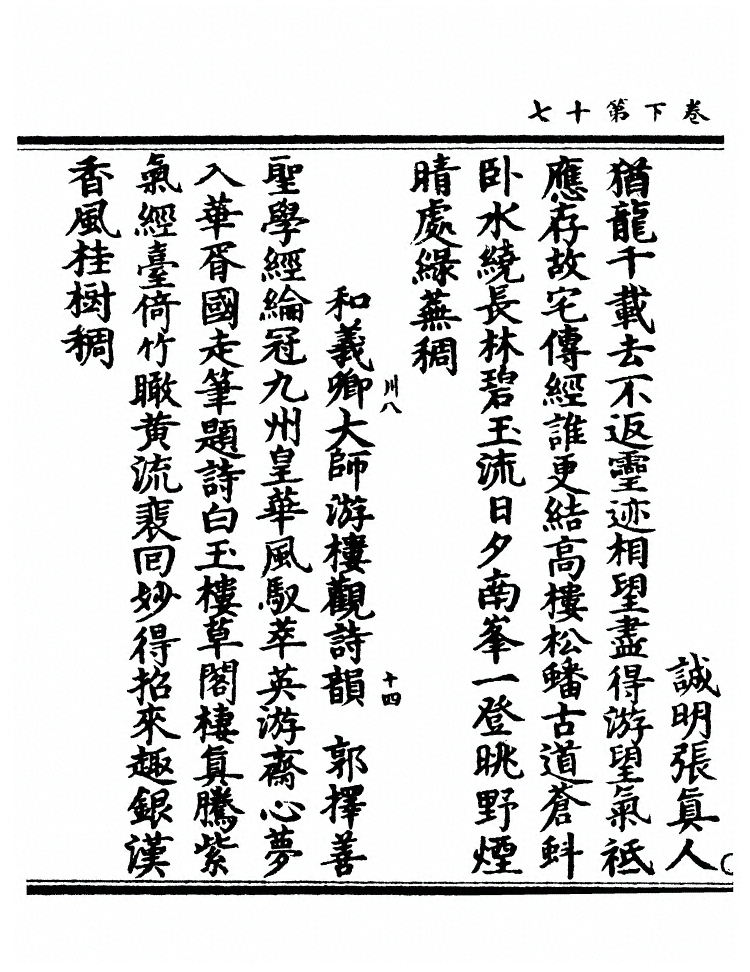 卷下第十七
誠明張眞人
猶龍千載去不返靈迹相望盡得游望氣祗
應存故宅傳經誰更結高樓松蟠古道蒼蚪
卧水繞長林碧玉流日夕南峯一登眺野煙
晴處綠蕪稠
川八
和義卿大師游樓觀詩韻　郭擇善
十四
聖學經綸冠九州皇華風馭萃英游齋心夢
入華胥國走筆題詩白玉樓草閣棲眞騰紫
氣經臺倚竹瞰黄流裴回妙得招來趣銀漢
香風桂樹稠